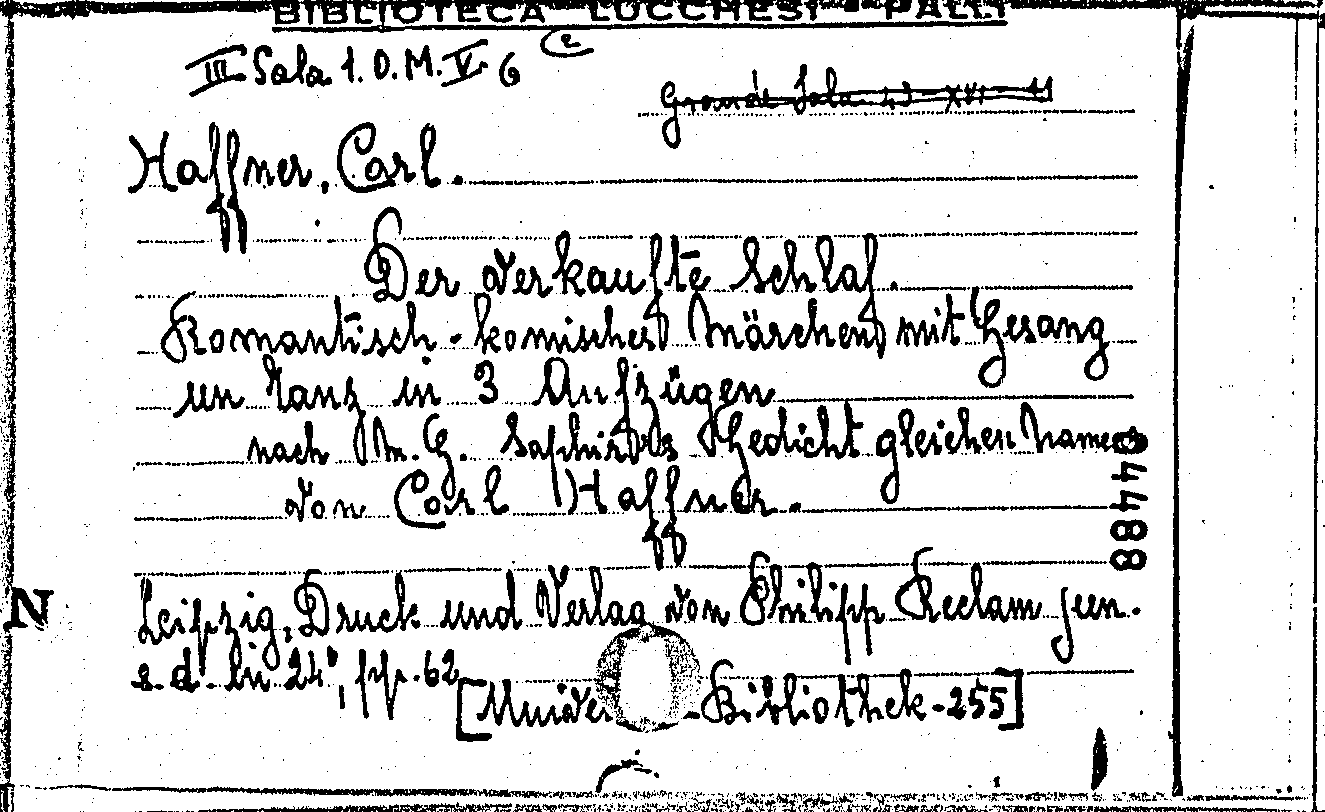 BIBLIOTECA LUCCHESI - PALLI
III Sala 1. O. M. V. 6 (2
Grande Sala 43 - XVI - 41
Haffner, Carl.
Der verkaufte Schlaf.
Romantisch-komisches Märchen mit Gesang
un Tanz in 3 Aufzügen
nach M. G. Saphir's Gedicht gleichen Namens
von Carl Haffner.
04488
N
Leipzig, Druck und Verlag von Philipp Reclam jun.
s. d. in 24°, pp. 62
[Univer -Bibliothek - 255]